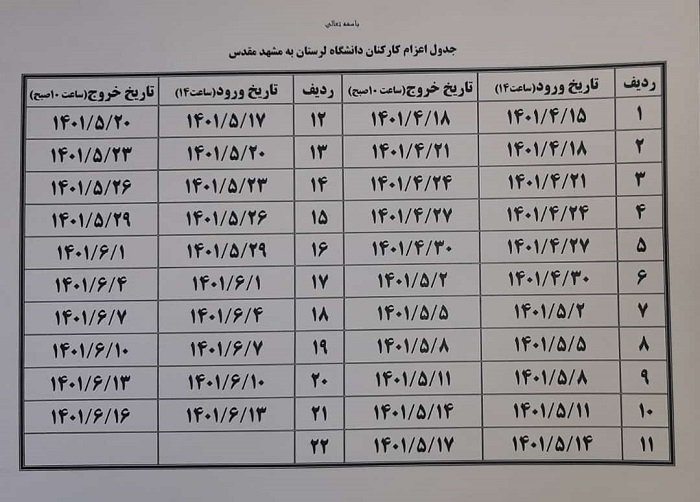 باسمه تعالی
جدول اعزام کارکنان دانشگاه لرستان به مشهد مقدس
ردیف تاریخ ورود(ساعت ۱۴) تاریخ خروج(ساعت ۱۰صبح) ردیف تاریخ ورود(ساعت ۱۴) تاریخ خروج(ساعت ۱۰صبح)
۱ ۱۴۰۱/۴/۱۵ ۱۴۰۱/۴/۱۸ ۱۲ ۱۴۰۱/۵/۱۷ ۱۴۰۱/۵/۲۰
۲ ۱۴۰۱/۴/۱۸ ۱۴۰۱/۴/۲۱ ۱۳ ۱۴۰۱/۵/۲۰ ۱۴۰۱/۵/۲۳
۳ ۱۴۰۱/۴/۲۱ ۱۴۰۱/۴/۲۴ ۱۴ ۱۴۰۱/۵/۲۳ ۱۴۰۱/۵/۲۶
۴ ۱۴۰۱/۴/۲۴ ۱۴۰۱/۴/۲۷ ۱۵ ۱۴۰۱/۵/۲۶ ۱۴۰۱/۵/۲۹
۵ ۱۴۰۱/۴/۲۷ ۱۴۰۱/۴/۳۰ ۱۶ ۱۴۰۱/۵/۲۹ ۱۴۰۱/۶/۱
۶ ۱۴۰۱/۴/۳۰ ۱۴۰۱/۵/۲ ۱۷ ۱۴۰۱/۶/۱ ۱۴۰۱/۶/۴
۷ ۱۴۰۱/۵/۲ ۱۴۰۱/۵/۵ ۱۸ ۱۴۰۱/۶/۴ ۱۴۰۱/۶/۷
۸ ۱۴۰۱/۵/۵ ۱۴۰۱/۵/۸ ۱۹ ۱۴۰۱/۶/۷ ۱۴۰۱/۶/۱۰
۹ ۱۴۰۱/۵/۸ ۱۴۰۱/۵/۱۱ ۲۰ ۱۴۰۱/۶/۱۰ ۱۴۰۱/۶/۱۳
۱۰ ۱۴۰۱/۵/۱۱ ۱۴۰۱/۵/۱۴ ۲۱ ۱۴۰۱/۶/۱۳ ۱۴۰۱/۶/۱۶
۱۱ ۱۴۰۱/۵/۱۴ ۱۴۰۱/۵/۱۷ ۲۲